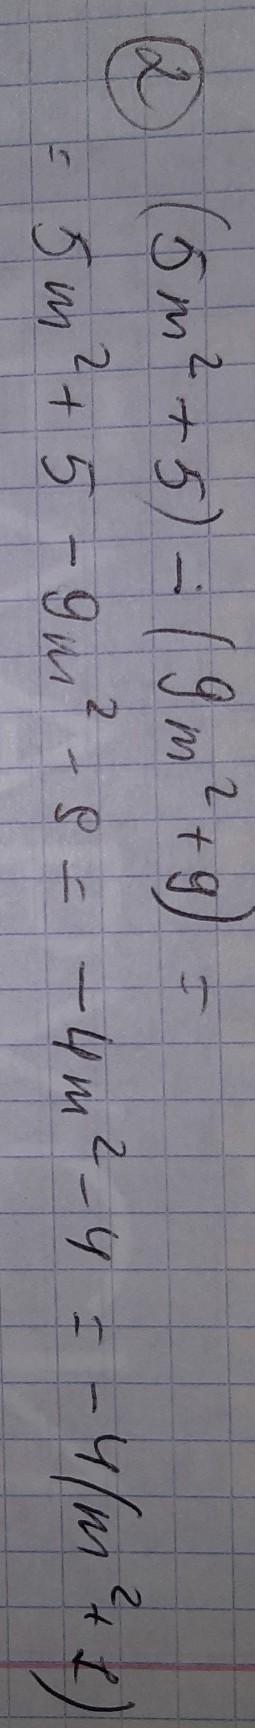 ② (5m² + 5) - (9m² + 9) =
= 5m² + 5 - 9m² - 9 = - 4m² - 4 = - 4(m² + 1)